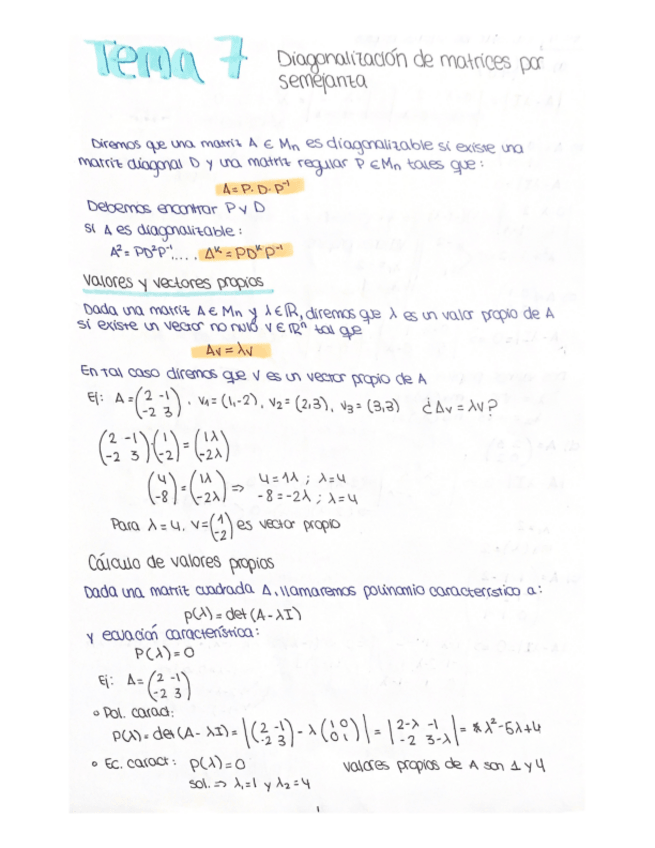 Tema 7 Diagonalización de matrices por
semejanza
Diremos que una matriz A ∈ Mn es diagonalizable si existe una
matriz diagonal D y una matriz regular P ∈ Mn tales que:
A = P·D·P⁻¹
Debemos encontrar P y D
Si A es diagonalizable:
A² = PD²P⁻¹, ... , Aᴷ = PDᴷP⁻¹
Valores y vectores propios
Dada una matriz A ∈ Mn y λ ∈ ℝ, diremos que λ es un valor propio de A
si existe un vector no nulo V ∈ ℝⁿ tal que
Av = λv
En tal caso diremos que v es un vector propio de A
Ej: A = (2 -1 / -2 3), v₁ = (1,-2), v₂ = (2,3), v₃ = (3,3) ¿Av = λv?
(2 -1 / -2 3)·(1 / -2) = (1λ / -2λ)
(4 / -8) = (1λ / -2λ) ⇒ 4 = 1λ ; λ = 4
-8 = -2λ ; λ = 4
Para λ = 4, v = (1 / -2) es vector propio
Cálculo de valores propios
Dada una matriz cuadrada A, llamaremos polinomio característico a:
p(λ) = det (A - λI)
y ecuación característica:
P(λ) = 0
Ej: A = (2 -1 / -2 3)
◦ Pol. caract:
P(λ) = det (A - λI) = |(2 -1 / -2 3) - λ (1 0 / 0 1)| = |2-λ -1 / -2 3-λ| = λ² - 5λ + 4
◦ Ec. caract: p(λ) = 0 valores propios de A son 1 y 4
sol. ⇒ λ₁ = 1 y λ₂ = 4